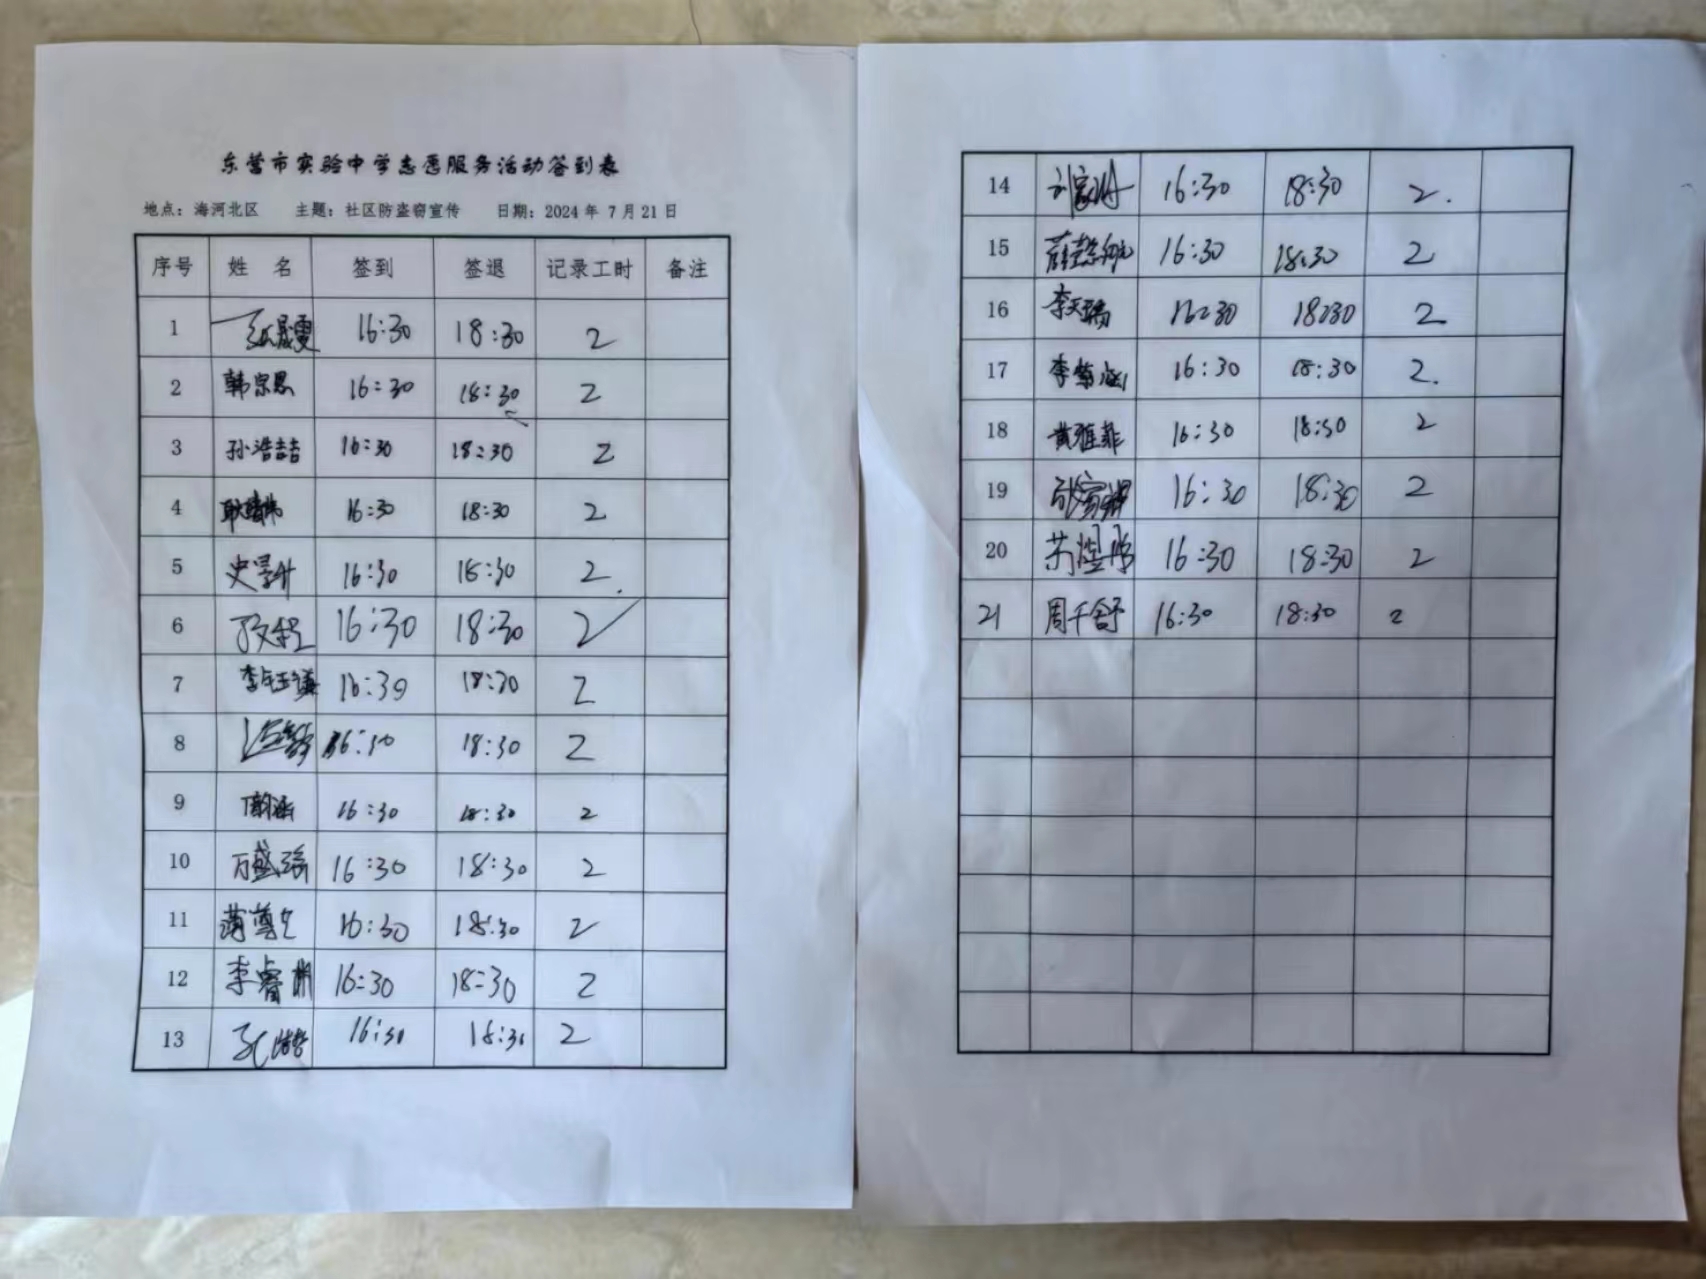 东营市实验中学志愿服务活动签到表
地点：海河北区 主题：社区防盗窃宣传 日期：2024 年 7 月 21 日
序号 姓 名 签到 签退 记录工时 备注
1 16:30 18:30 2
2 韩宗恩 16:30 18:30 2
3 孙浩喆 16:30 18:30 2
4 16:30 18:30 2
5 史 16:30 18:30 2
6 16:30 18:30 2
7 李 16:30 18:30 2
8 16:30 18:30 2
9 16:30 18:30 2
10 万盛 16:30 18:30 2
11 16:30 18:30 2
12 李睿 16:30 18:30 2
13 孔 16:30 18:30 2
14 刘家 16:30 18:30 2.
15 薛懿 16:30 18:30 2
16 李天瑞 16:30 18:30 2
17 李 16:30 18:30 2.
18 黄雅菲 16:30 18:30 2
19 16:30 18:30 2
20 煜彤 16:30 18:30 2
21 周千舒 16:30 18:30 2